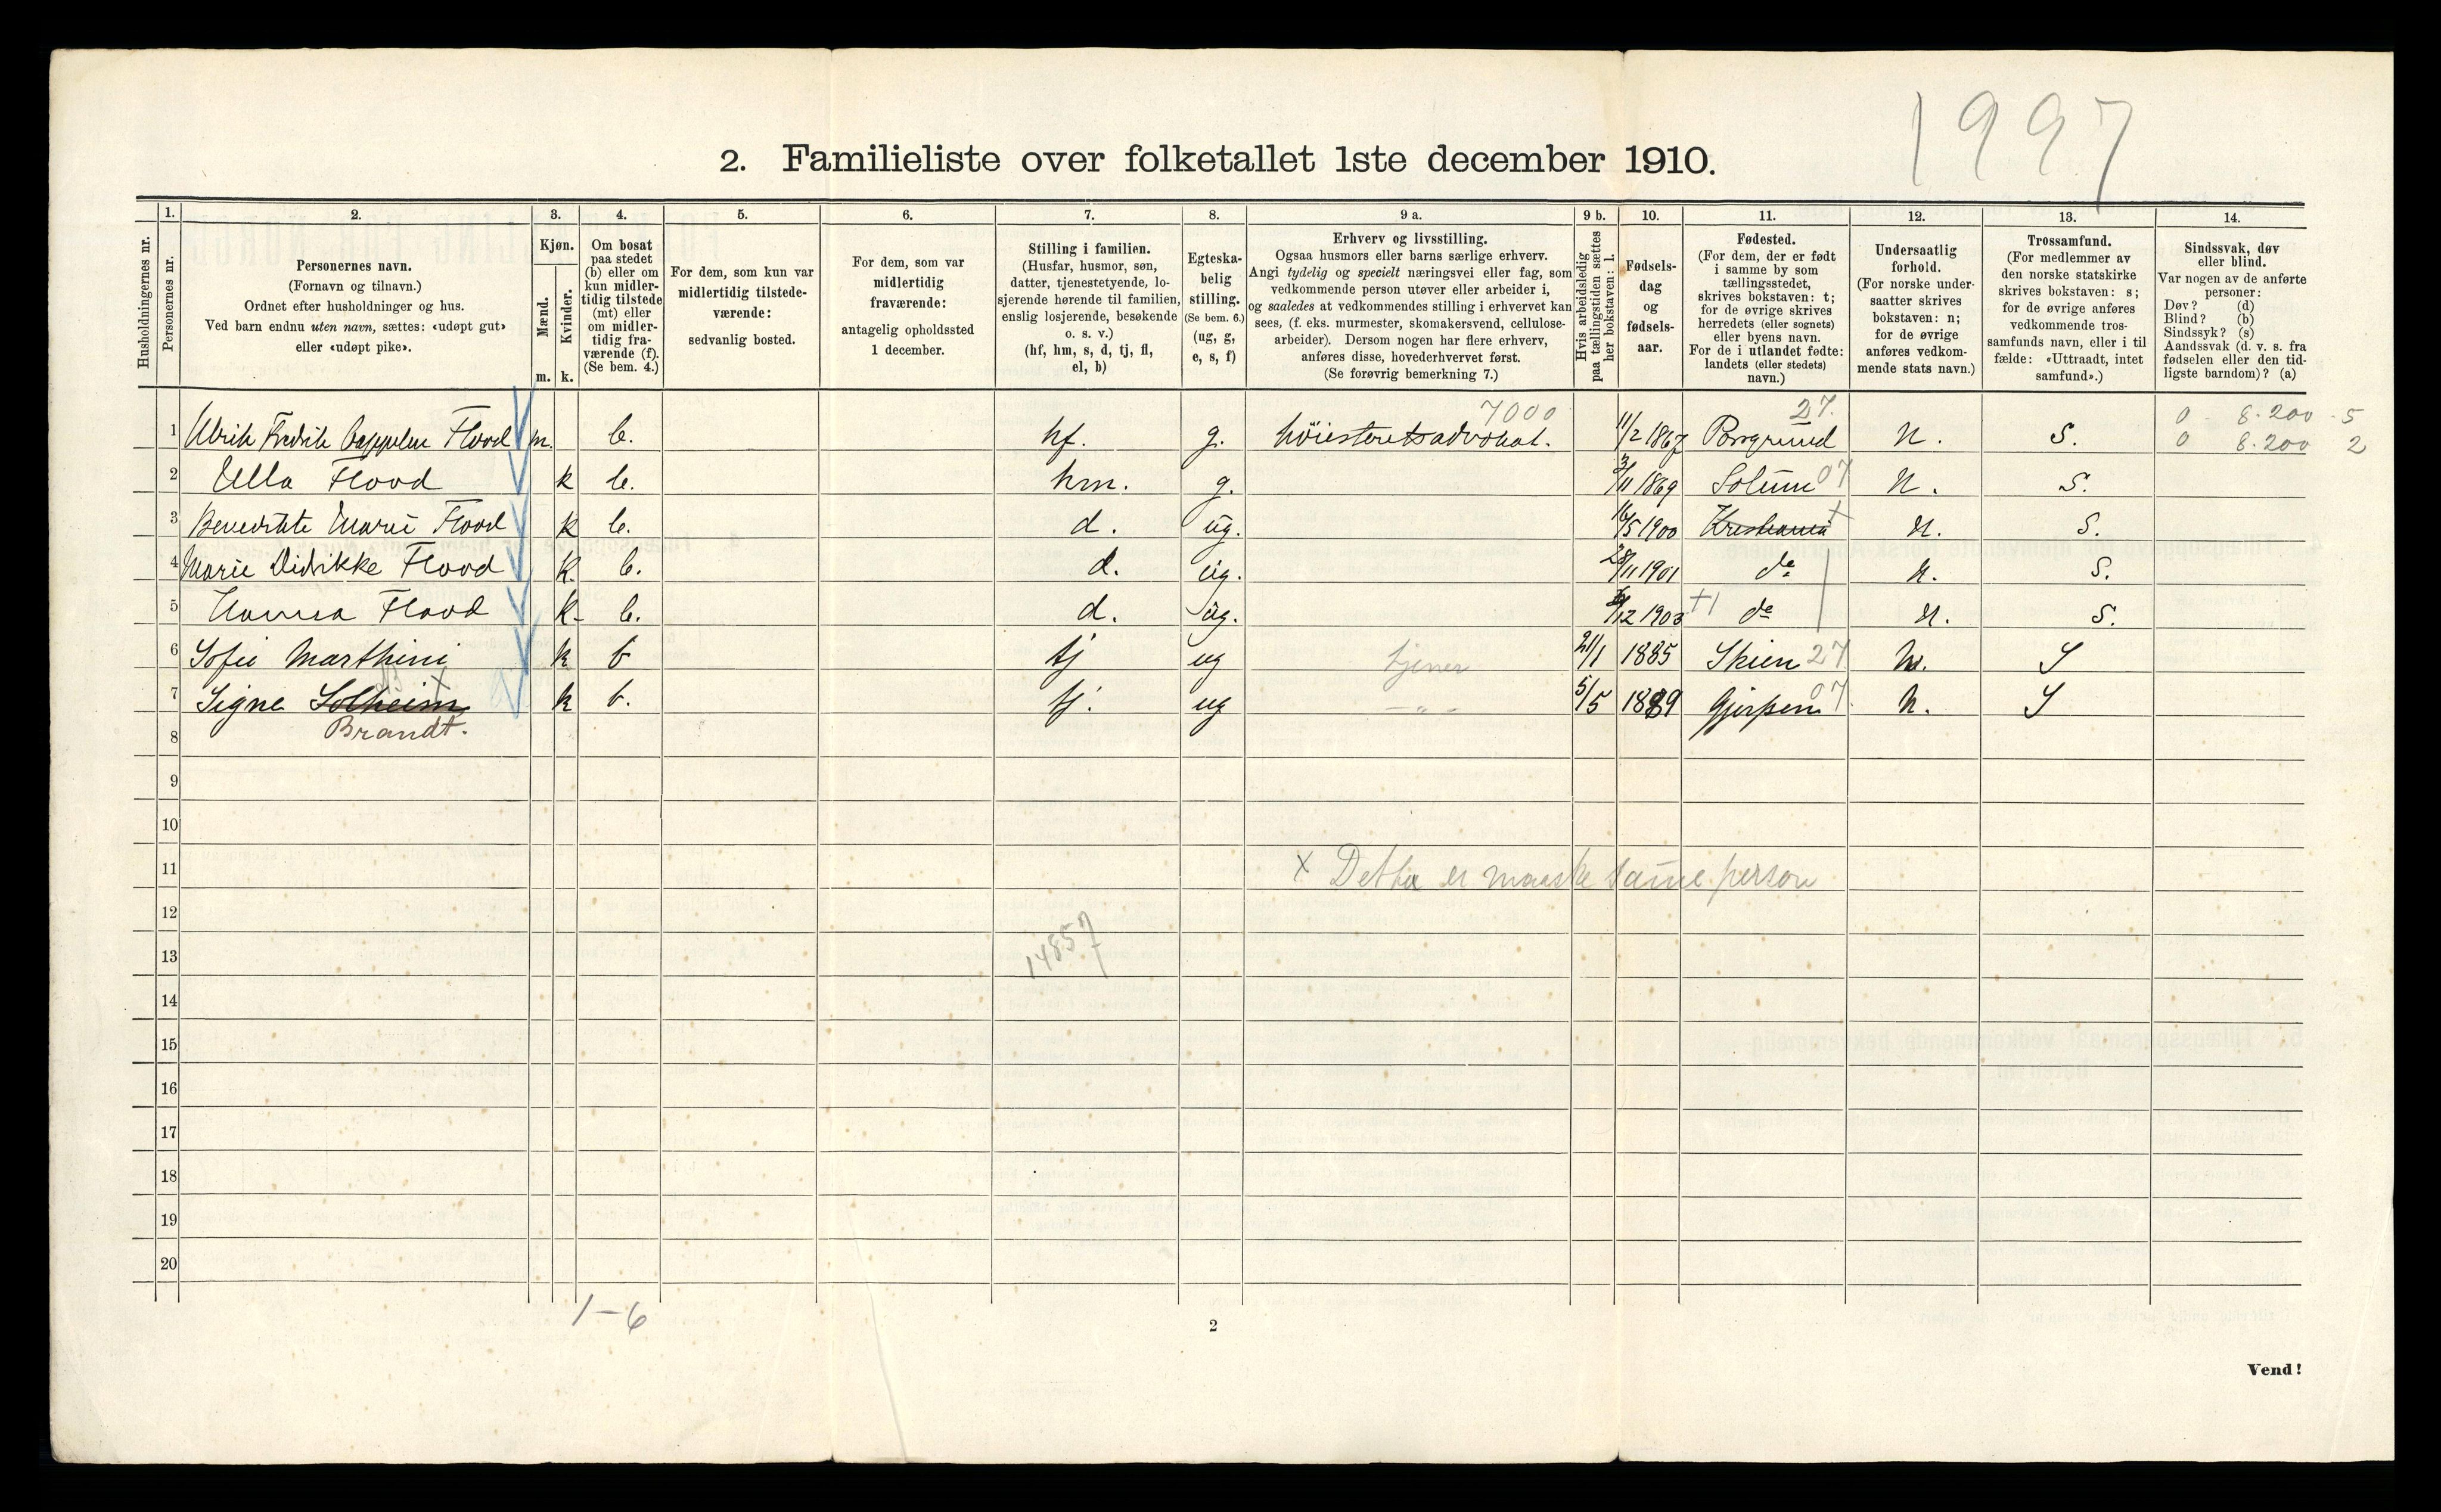 1997
2. Familieliste over folketallet 1ste december 1910.
Husholdningernes nr.
1.
Personernes nr.
2.
Personernes navn.
(Fornavn og tilnavn.)
Ordnet efter husholdninger og hus.
Ved barn endnu uten navn, sættes: «udøpt gut»
eller «udøpt pike».
3.
Kjøn.
Mænd.
Kvinder.
m. k.
4.
Om bosat
paa stedet
(b) eller om
kun midler-
tidig tilstede
(mt) eller
om midler-
tidig fra-
værende (f).
(Se bem. 4.)
5.
For dem, som kun var
midlertidig tilstede-
værende:
sedvanlig bosted.
6.
For dem, som var
midlertidig
fraværende:
antagelig opholdssted
1 december.
7.
Stilling i familien.
(Husfar, husmor, søn,
datter, tjenestetyende, lo-
sjerende hørende til familien,
enslig losjerende, besøkende
o. s. v.)
(hf, hm, s, d, tj, fl,
el, b)
8.
Egteska-
belig
stilling.
(Se bem. 6.)
(ug, g,
e, s, f)
9 a.
Erhverv og livsstilling.
Ogsaa husmors eller barns særlige erhverv.
Angi tydelig og specielt næringsvei eller fag, som
vedkommende person utøver eller arbeider i,
og saaledes at vedkommendes stilling i erhvervet kan
sees, (f. eks. murmester, skomakersvend, cellulose-
arbeider). Dersom nogen har flere erhverv,
anføres disse, hovederhvervet først.
(Se forøvrig bemerkning 7.)
9 b.
Hvis arbeidsledig
paa tællingstiden sættes
her bokstaven: l.
10.
Fødsels-
dag
og
fødsels-
aar.
11.
Fødested.
(For dem, der er født
i samme by som
tællingsstedet,
skrives bokstaven: t;
for de øvrige skrives
herredets (eller sognets)
eller byens navn.
For de i utlandet fødte:
landets (eller stedets)
navn.)
12.
Undersaatlig
forhold.
(For norske under-
saatter skrives
bokstaven: n;
for de øvrige
anføres vedkom-
mende stats navn.)
13.
Trossamfund.
(For medlemmer av
den norske statskirke
skrives bokstaven: s;
for de øvrige anføres
vedkommende tros-
samfunds navn, eller i til
fælde: «Uttraadt, intet
samfund».)
14.
Sindssvak, døv
eller blind.
Var nogen av de anførte
personer:
Døv? (d)
Blind? (b)
Sindssyk? (s)
Aandssvak (d. v. s. fra
fødselen eller den tid-
ligste barndom)? (a)
7000 27. 0 - 8.200 - 5
1 Ulrik Fredrik Cappelen Flood m. b. hf. g. höiesteretsadvokat. 11/2 1867 Porsgrund n. s. 0 8.200 2
2 Ulla Flood k b. hm. g. 3/11 1869 Solum 07 n. s.
3 Benedikte Marie Flood k b. d. ug. 16/5 1900 Kristiania + n. s.
4 Marie Didrikke Flood k. b. d. ug. 28/11 1901 do n. s.
5 Hanna Flood k. b. d. ug. /12 1903 +1 do n. s.
6 Sofie Marthini k b tj ug tjener 21/1 1885 Skien 27 n. S
7 Signe Solheim x k b. tj. ug - " - 5/5 1889 Gjerpen 07 n. S
Brandt.
8
9
10
11 x Dette er maaske samme person
12
13 14857
14
15
16
17
18
19
20
1-6
2
Vend!